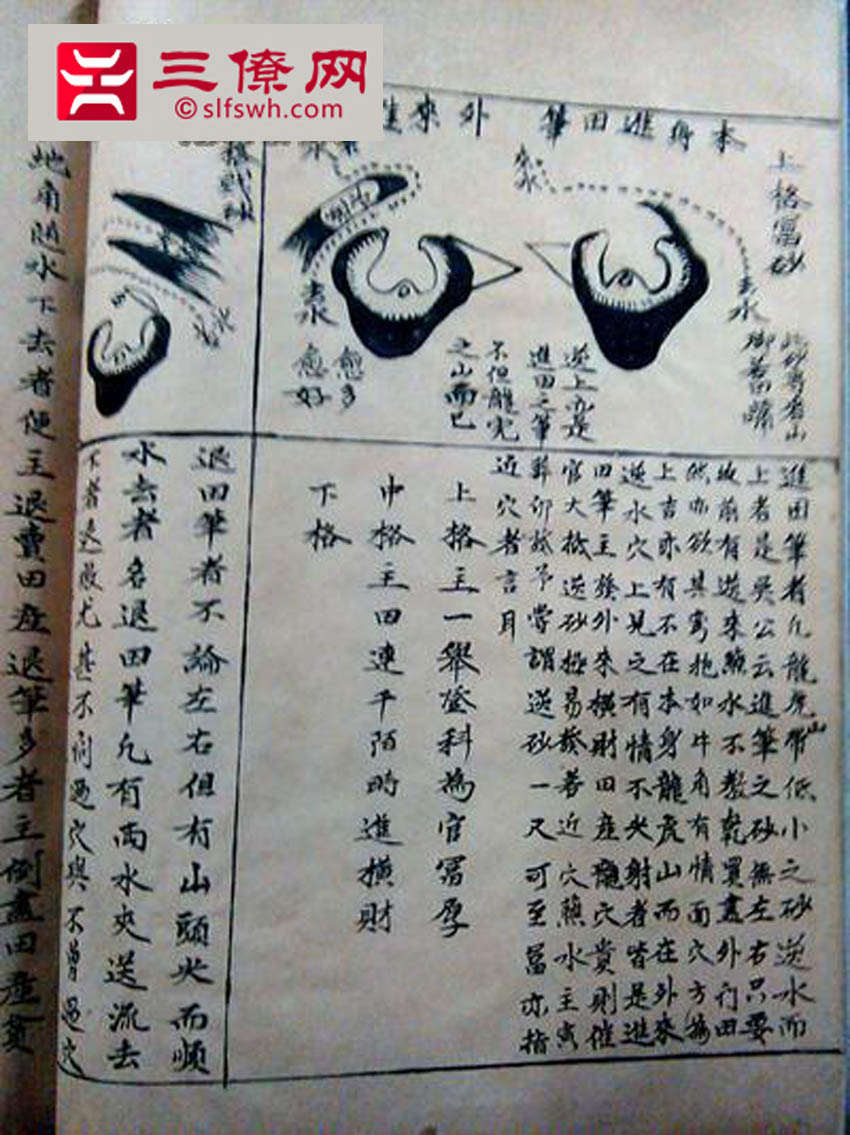 三僚网
©slfswh.com
上格富砂
本身進田筆
外來進
去水
去水
逆上亦是
進田之筆
不但龍虎
之山而已
愈多
愈好
進田筆者凡龍虎山帶低小之砂逆水而
上者是吳公云進筆之砂無左右只要
故前有逆來點水不教乾買盡外門田
然亦欲其彎抱如牛角有情面穴方為
上吉亦有不在本身龍虎山而在外來
逆水穴上見之有情不尖射者皆是進
田筆主發外來橫財田産龍穴貴則催
官大抵逆砂極易發者近穴
可至富亦指
近穴者言耳
上格主一舉登科為官富厚
中格主田連千陌時進橫財
下格
退田筆者不論左右但有山頭尖而順
水去者名退田筆凡有兩水夾送流去
地角隨水下去者便主退賣田産退筆多者主倒盡田産貧